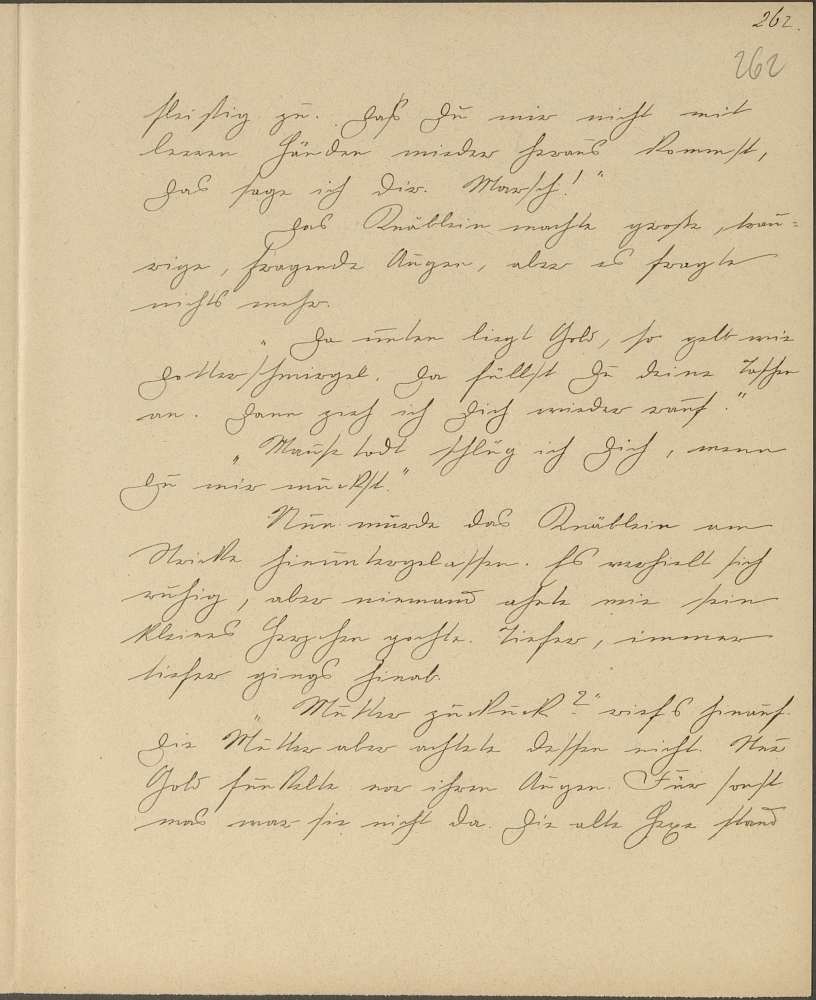 262.
262
fleißig zu. Daß Du mir nicht mit
leeren Händen wieder heraus kommst,
das sage ich dir. Marsch!"
Das Knäblein machte große, trau-
rige, fragende Augen, aber es fragte
nichts mehr.
"Da unten liegt Gold, so gelb wie
Dotterschmirgel. Da füllst Du deine Taschen
an. Dann zieh ich Dich wieder rauf."
"Mausetodt schlüg ich Dich, wenn
Du mir muckst."
Nun wurde das Knäblein am
Stricke hinuntergelassen. Es verhielt sich
ruhig, aber niemand ahnte wie sein
kleines Herzchen pochte. Tiefer, immer
tiefer gings hinab.
"Mutter zuckuck?" riefs hinauf.
Die Mutter aber achtete dessen nicht. Nur
Gold funkelte vor ihren Augen. Für sonst
was war sie nicht da. Die alte Hexe stand